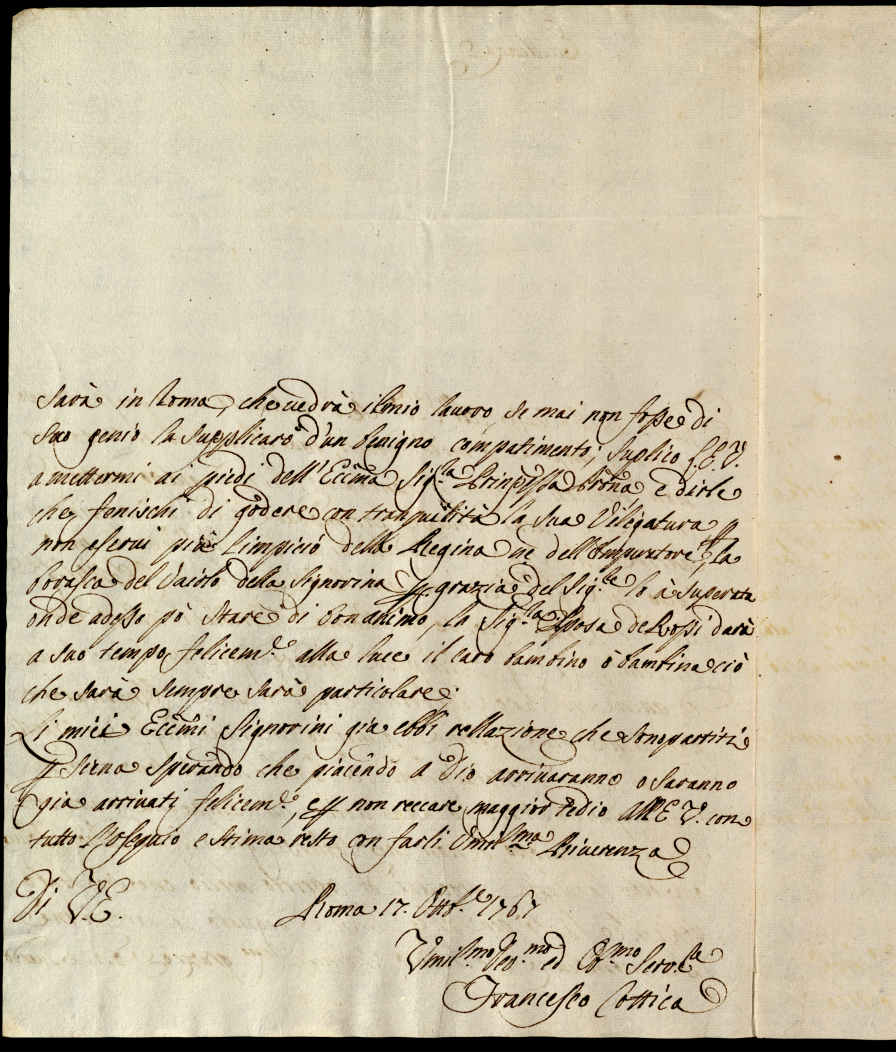 sarà in Roma, che vedrà il mio lavoro, se mai non fosse di
suo genio la supplicarò d'un benigno compatimento; suplico l'E.V.
a mettermi ai piedi dell'Ecc̃ma Sig.la Prinpessa Pr̃ona e dirle
che fenischi di godere con tranquilità la sua Vilegatura p
non eservi più l'impició della Regina ne dell'Imperatore, la
borasca del Vaiolo della Signovina p grazia del Sig.le lo à superata
onde adesso pò stare di bon animo, la Sig.la Sposa de Rossi darà
a suo tempo felicem.e alla luce il caro bambino ò bambina ciò
che sarà sempre sarà particolare;
Li miei Ecc̃mi Signorini già ebbi rellazione che sono partiti
p Siena sperando che piacendo a Dio arrivaranno o saranno
già arrivati felicem.e e p non reccare maggior tedio all'E.V. con
tutto l'ossequio e stima resto con farli Umil.ma Riverenza
Di V.E. Roma 17. Ott.e 1767
Umil.mo Dev.mo ed Ob.mo Serv.
Francesco Cottica